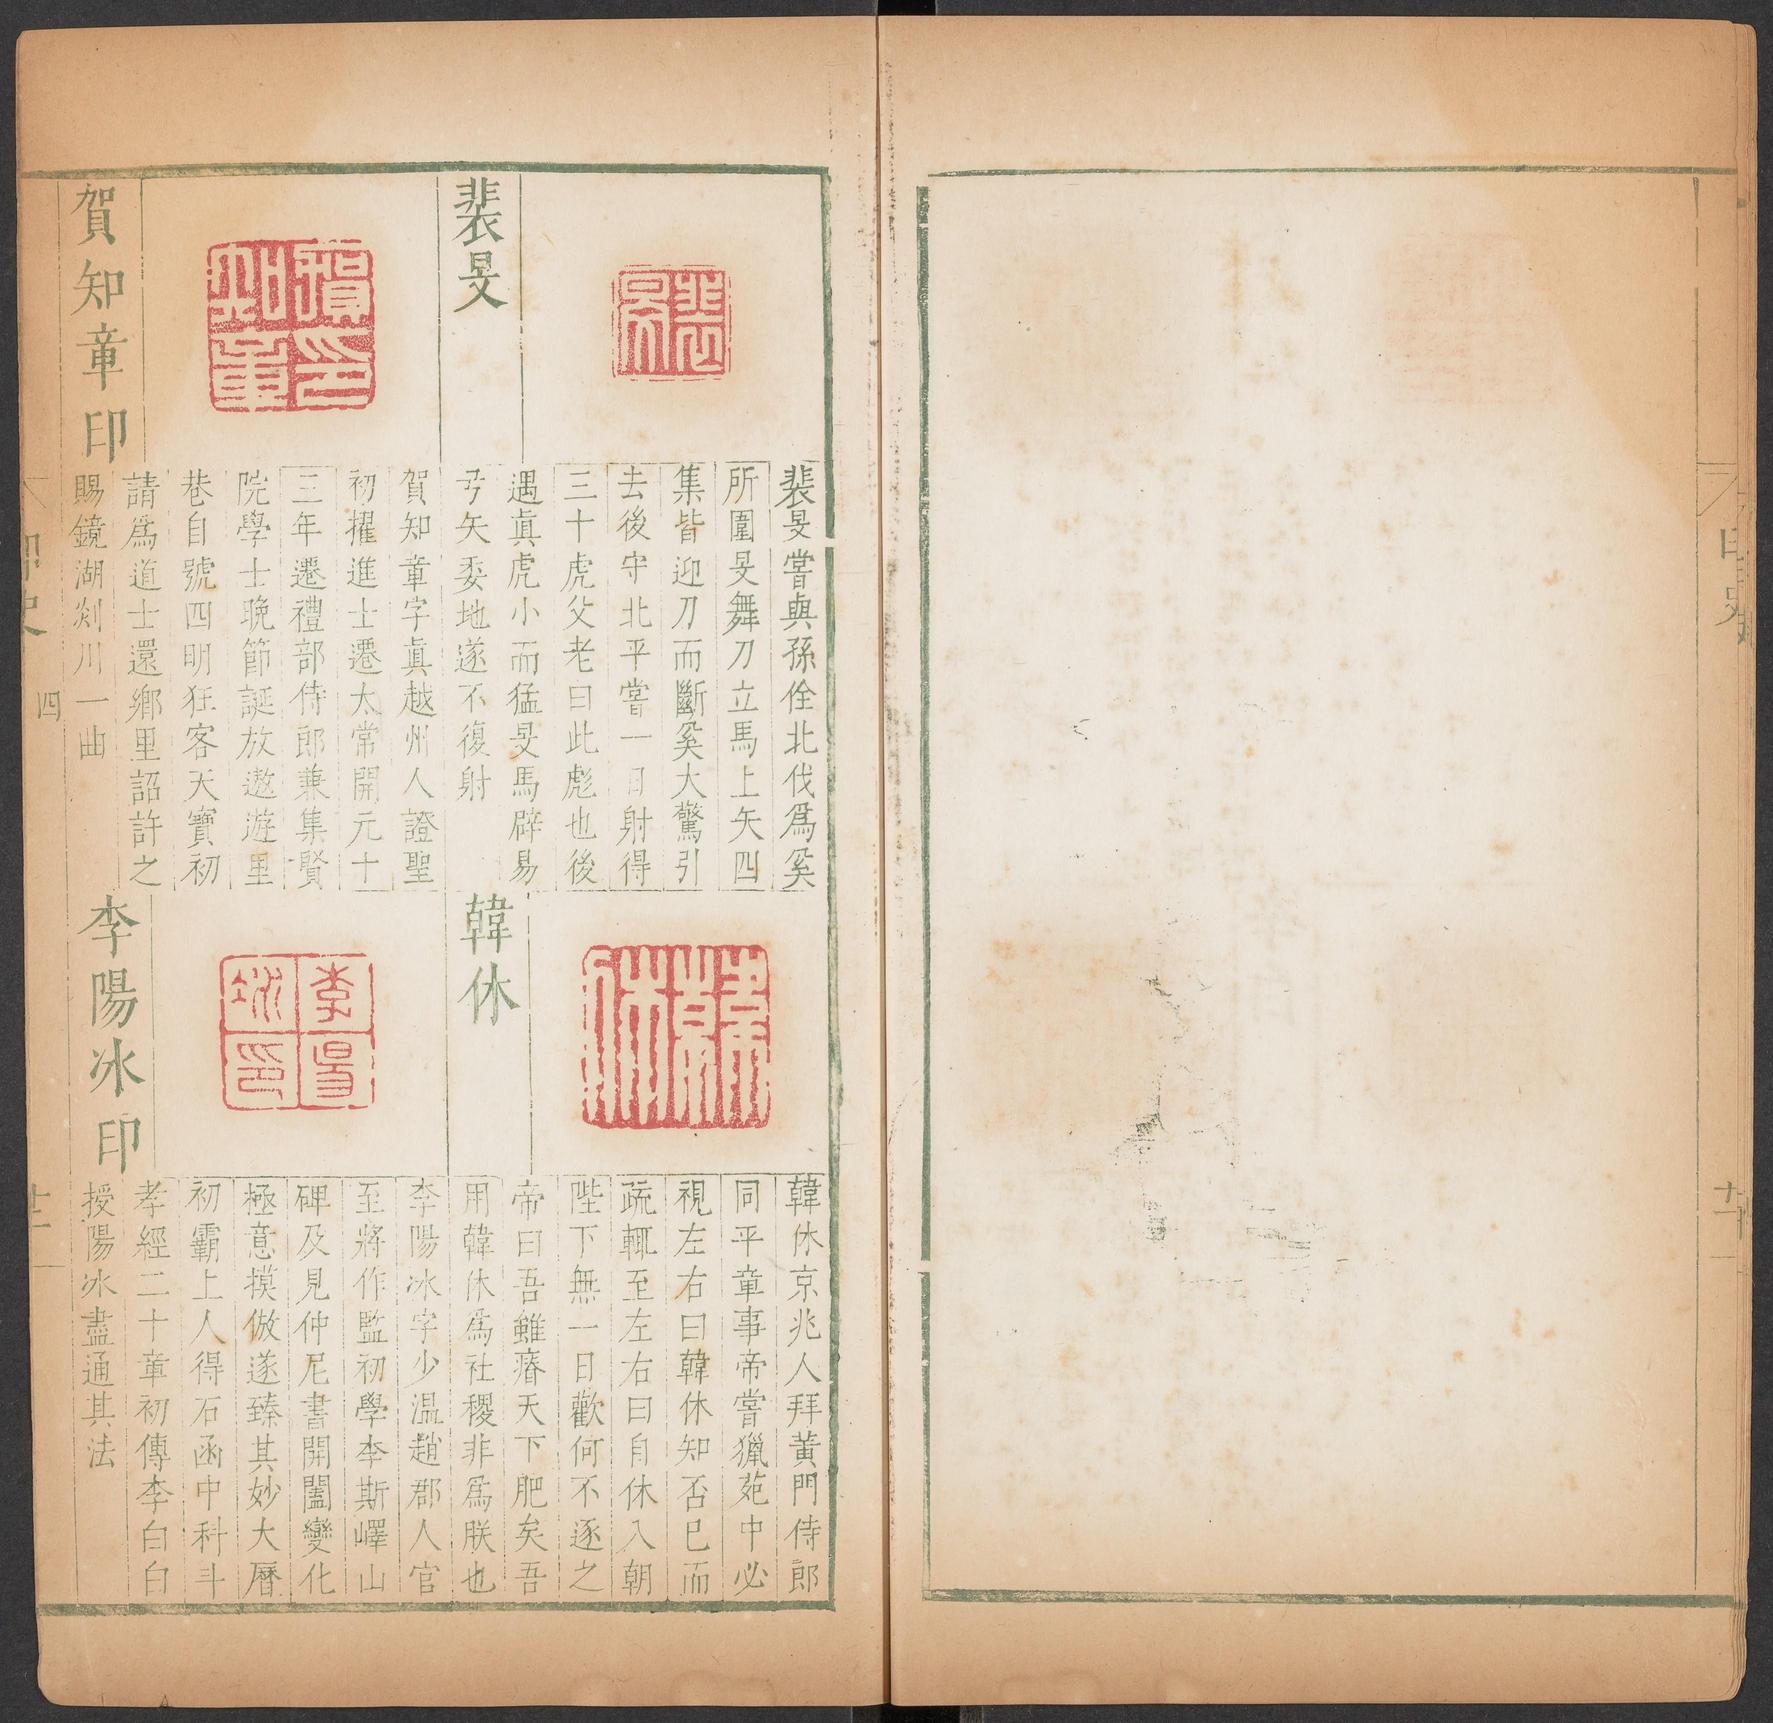 裴旻
裴旻嘗與孫佺北伐爲奚
所圍旻舞刀立馬上矢四
集皆迎刀而斷奚大驚引
去後守北平嘗一日射得
三十虎父老曰此彪也後
遇眞虎小而猛旻馬辟易
弓矢委地遂不復射
賀知章印
賀知章字眞越州人證聖
初擢進士遷太常開元十
三年遷禮部侍郎兼集賢
院學士晚節誕放遨遊里
巷自號四明狂客天寶初
請爲道士還鄉里詔許之
賜鏡湖剡川一曲
韓休
韓休京兆人拜黃門侍郎
同平章事帝嘗獵苑中必
視左右曰韓休知否已而
疏輒至左右曰自休入朝
陛下無一日歡何不逐之
帝曰吾雖瘠天下肥矣吾
用韓休爲社稷非爲朕也
李陽冰印
李陽冰字少温趙郡人官
至將作監初學李斯嶧山
碑及見仲尼書開闔變化
極意摸倣遂臻其妙大曆
初霸上人得石函中科斗
孝經二十章初傳李白白
授陽冰盡通其法
印史
四